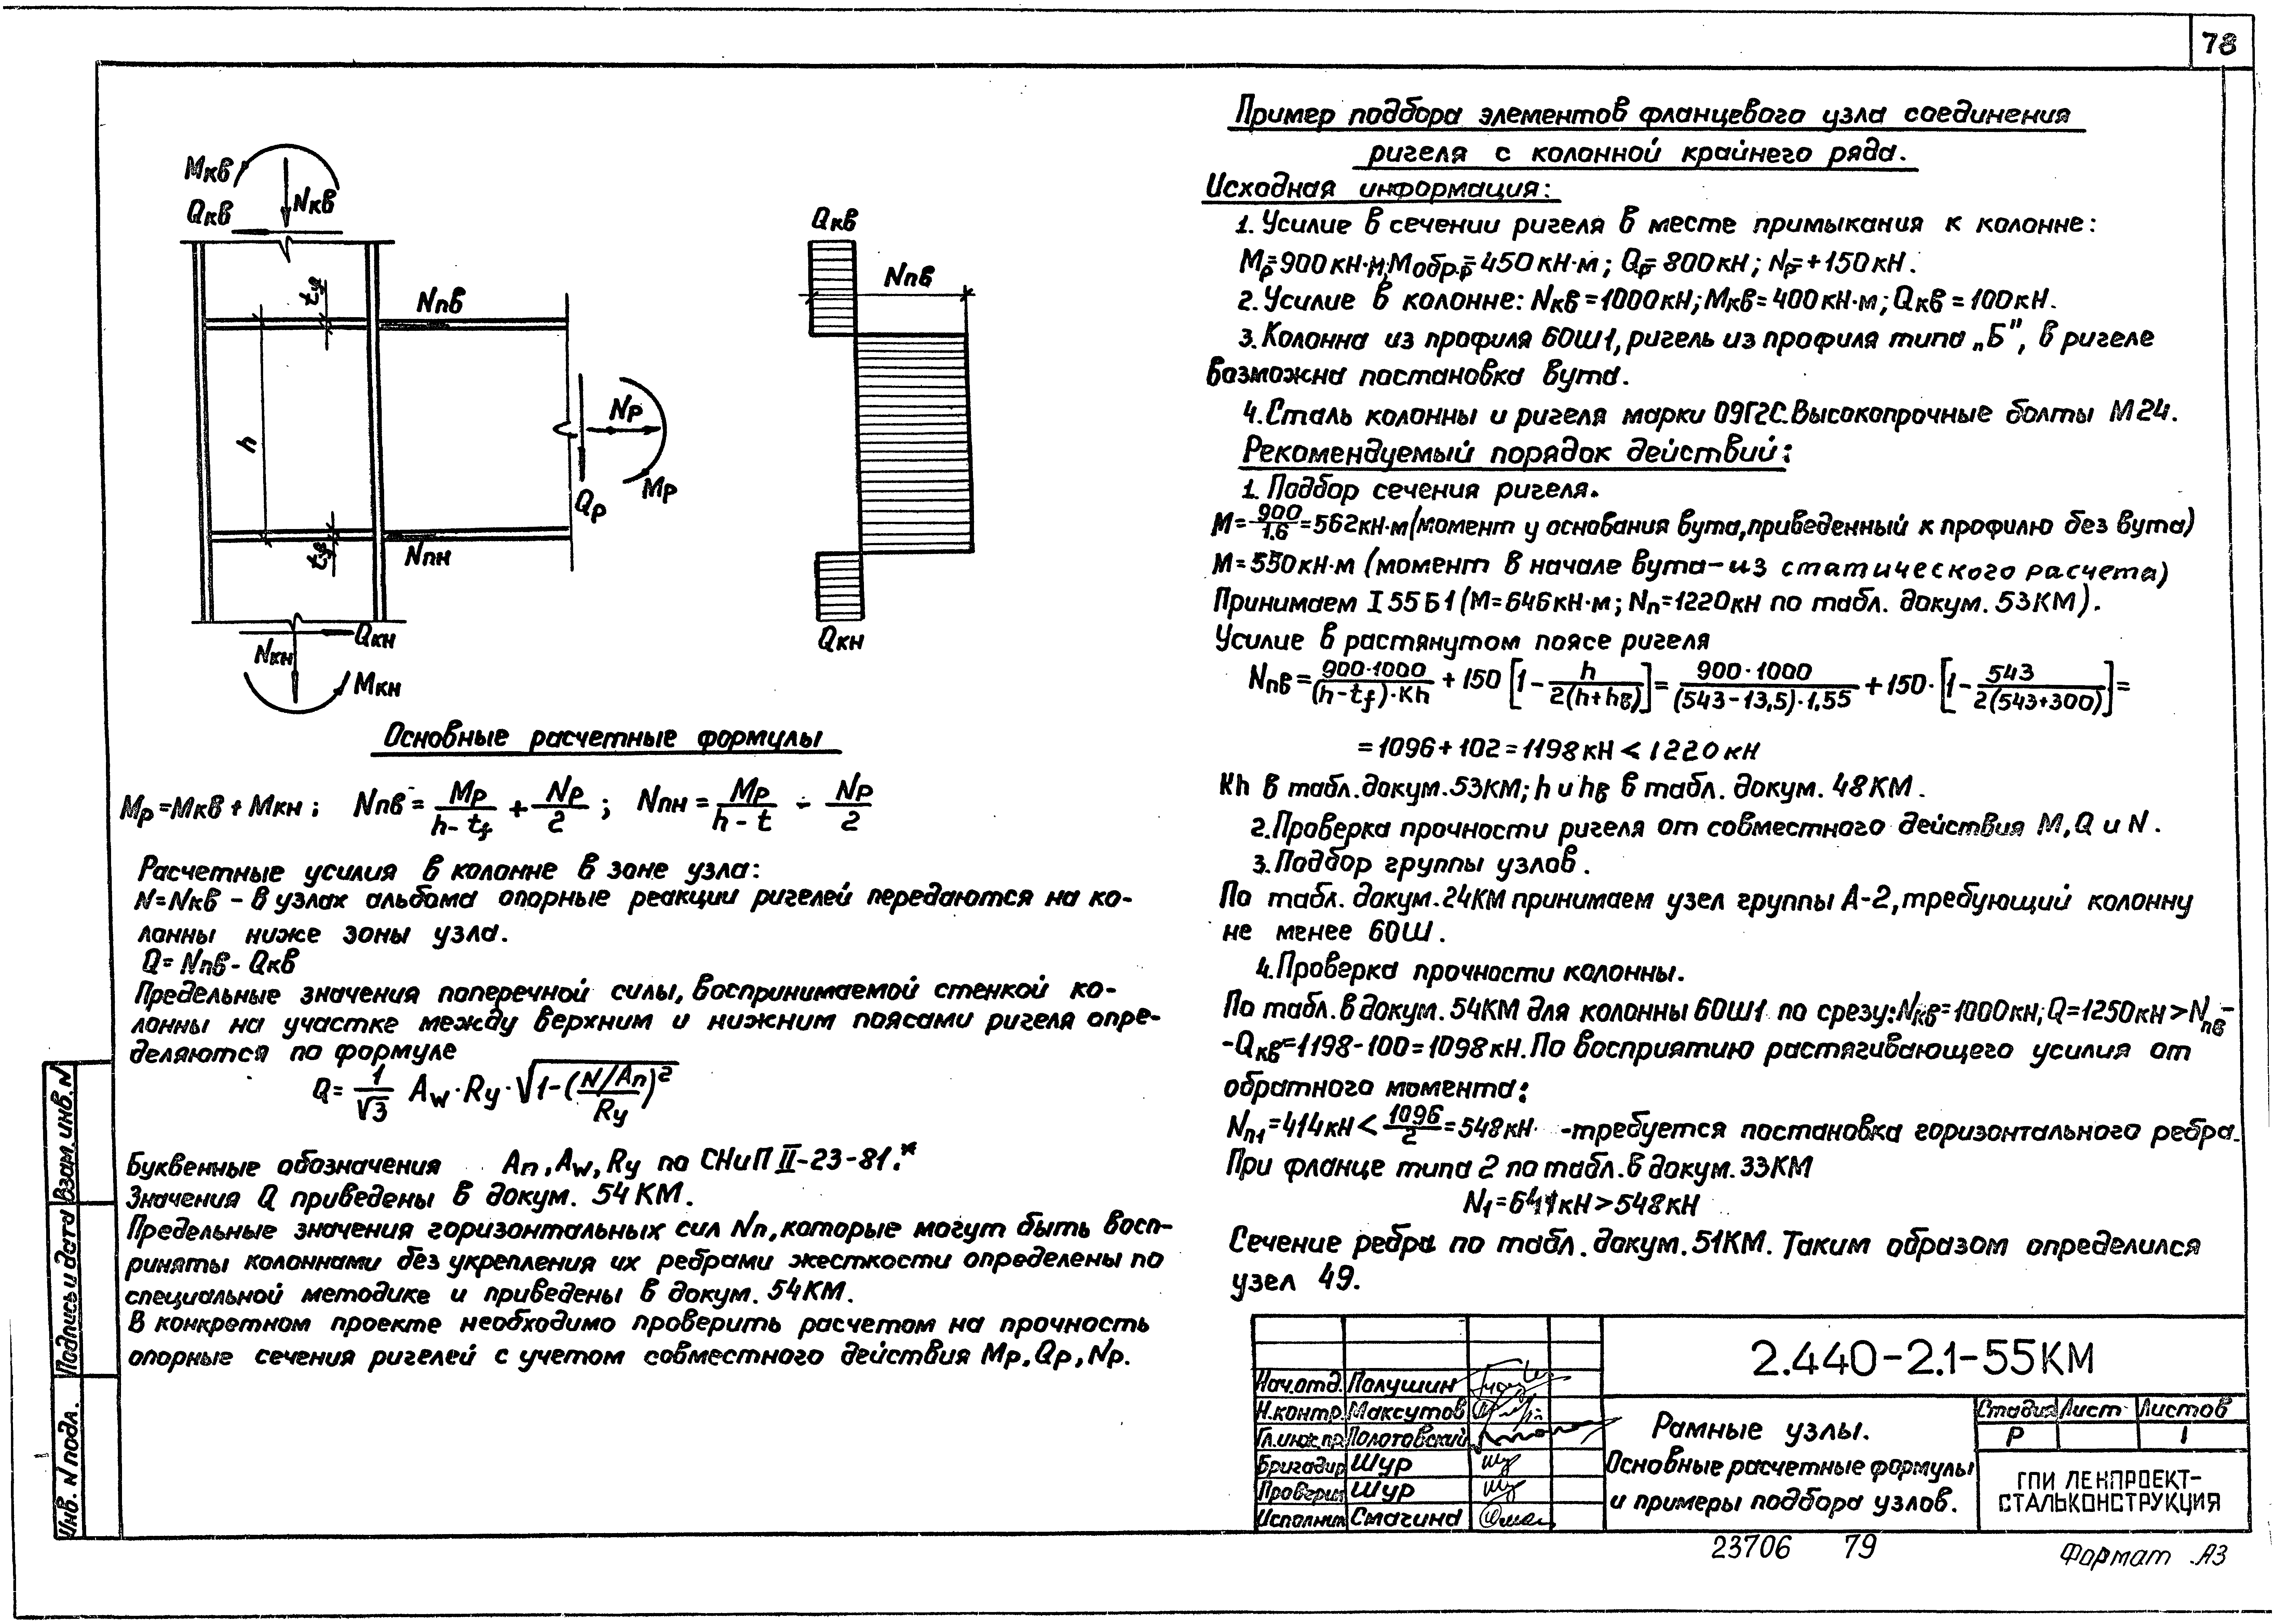 78
Mкв
Nкв
Qкв
tf
Nпв
h
Nр
Qр
Mр
tf
Nпн
Qкн
Nкн
Mкн
Qкв
Nпв
Qкн
Основные расчетные формулы
Mр=Mкв+Mкн; Nпв=Mр/(h-tf)+Nр/2; Nпн=Mр/(h-t)-Nр/2
Расчетные усилия в колонне в зоне узла:
N=Nкв - в узлах альбома опорные реакции ригелей передаются на ко-
лонны ниже зоны узла.
Q=Nпв-Qкв
Предельные значения поперечной силы, воспринимаемой стенкой ко-
лонны на участке между верхним и нижним поясами ригеля опре-
деляются по формуле
Q=1/√3 Aw·Ry·√(1-((N/Aп)/Ry)²)
Буквенные обозначения Aп, Aw, Ry по СНиП II-23-81.*
Значения Q приведены в докум. 54КМ.
Предельные значения горизонтальных сил Nп, которые могут быть восп-
риняты колоннами без укрепления их ребрами жесткости определены по
специальной методике и приведены в докум. 54КМ.
В конкретном проекте необходимо проверить расчетом на прочность
опорные сечения ригелей с учетом совместного действия Mр, Qр, Nр.
Пример подбора элементов фланцевого узла соединения
ригеля с колонной крайнего ряда.
Исходная информация:
1. Усилие в сечении ригеля в месте примыкания к колонне:
Mр=900кН·м; Mобр.р=450кН·м; Qр=800кН; Nр=+150кН.
2. Усилие в колонне: Nкв=1000кН; Mкв=400кН·м; Qкв=100кН.
3. Колонна из профиля 60Ш1, ригель из профиля типа „Б", в ригеле
возможна постановка вута.
4. Сталь колонны и ригеля марки 09Г2С. Высокопрочные болты М24.
Рекомендуемый порядок действий:
1. Подбор сечения ригеля.
M=900/1.6=562кН·м (момент у основания вута, приведенный к профилю без вута)
M=550кН·м (момент в начале вута-из статического расчета)
Принимаем I 55Б1 (M=646кН·м; Nп=1220кН по табл. докум. 53КМ).
Усилие в растянутом поясе ригеля
Nпв=900·1000/((h-tf)·Kh)+150[1-h/(2(h+hв))]=900·1000/((543-13,5)·1,55)+150·[1-543/(2(543+300))]=
=1096+102=1198кН<1220кН
Kh в табл. докум. 53КМ; h и hв в табл. докум. 48КМ.
2. Проверка прочности ригеля от совместного действия M, Q и N.
3. Подбор группы узлов.
По табл. докум. 24КМ принимаем узел группы А-2, требующий колонну
не менее 60Ш.
4. Проверка прочности колонны.
По табл. в докум. 54КМ для колонны 60Ш1 по срезу: Nкв=1000кН; Q=1250кН>Nпв-
-Qкв=1198-100=1098кН. По восприятию растягивающего усилия от
обратного момента:
Nп1=414кН<1096/2=548кН -требуется постановка горизонтального ребра.
При фланце типа 2 по табл. в докум. 33КМ
N1=641кН>548кН
Сечение ребра по табл. докум. 51КМ. Таким образом определился
узел 49.
Взам. инв. N
Подпись и дата
Инв. N подл.
2.440-2.1-55КМ
Нач.отд. Полушин
Н.контр. Максутов
Гл.инж.пр. Полотовский
Бригадир Шур
Проверил Шур
Исполнил Смагина
Рамные узлы.
Основные расчетные формулы
и примеры подбора узлов.
Стадия Лист Листов
Р 1
ГПИ ЛЕНПРОЕКТ-
СТАЛЬКОНСТРУКЦИЯ
23706 79
Формат А3